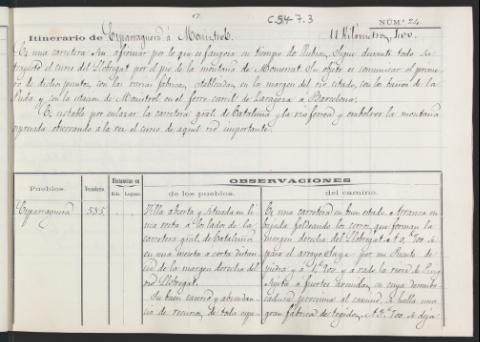 C.54-7.3
NÚM.º 24
Itinerario de Esparraguera á Monistrol. 11 Kilómetros,
Es una carretera sin afirmar por lo que es fangosa en tiempo de lluvias. Sigue durante todo su
trayecto el curso del Llobregat por el pié de la montaña de Monserrat. Su objeto es comunicar el prime-
ro de dichos puntos, con las varias fábricas, establecidas en la margen del rio citado, con los baños de la
Puda y con la estacion de Monistrol en el ferro-carril de Zaragoza á Barcelona.
Es notable por enlazar la carretera gral. de Cataluña y la via ferrea y envolver la montaña
expresada observando á la vez el curso de aquel rio importante.
OBSERVACIONES
Pueblos. Vecindario. Distancias en
Kils. Leguas. de los pueblos. del camino.
Esparraguera 535 . .
Villa abierta y situada en lí-
nea recta á los lados de la
carretera gral. de Cataluña
en una meseta a corta distan-
cia de la margen derecha del
rio Llobregat.
Su buen caserio y abundan-
cia de recursos, de toda espe-
Es una carretera en buen estado. Arranca en
bajada faldeando los cerros, que forman la
margen derecha del Llobregat. A
pasa el arroyo por un Puente de
piedra y á
á fuertes avenidas, en cuya desembo-
cadura proxima al camino, se halla una
gran fábrica de tejidos. se deja